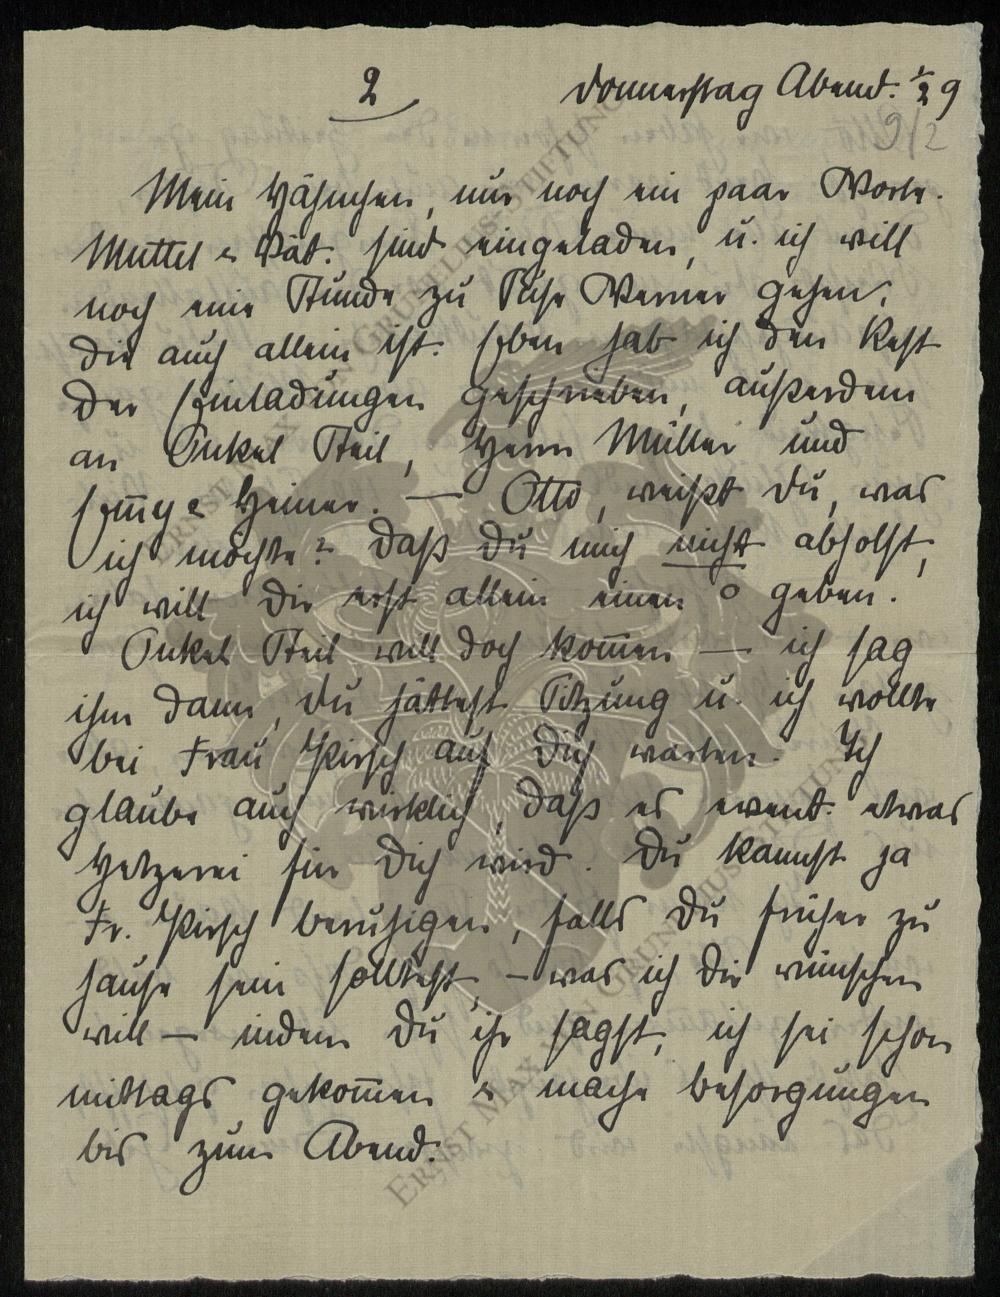 2 Donnerstag Abend. ½ 9
9/2
Mein Hähnchen, nur noch ein paar Worte.
Muttel & Vät. sind eingeladen, u. ich will
noch eine Stunde zu Werner gehen,
die auch allein ist. Eben hab ich den Rest
der Einladungen geschrieben, außerdem
an Onkel Theil, Herrn Müller und
Heiner. — Otto, weißt du, was
ich möchte? Daß du mich nicht abholst,
ich will dir erst allein einen o geben.
Onkel Theil will doch kom̄en — ich sag
ihm dann, du hättest Sitzung u. ich wollte
bei Frau Kirsch auf Dich warten. Ich
glaube auch wirklich, daß es event. etwas
Hetzerei für Dich wird. Du kannst ja
Fr. Kirsch beruhigen, falls du früher zu
hause sein solltest, – was ich dir wünschen
will — indem du ihr sagst, ich sei schon
mittags gekom̄en & mache besorgungen
bis zum Abend.
ERNST MAX VON GRUNELIUS-STIFTUNG
ERNST MAX VON GRUNELIUS-STIFTUNG